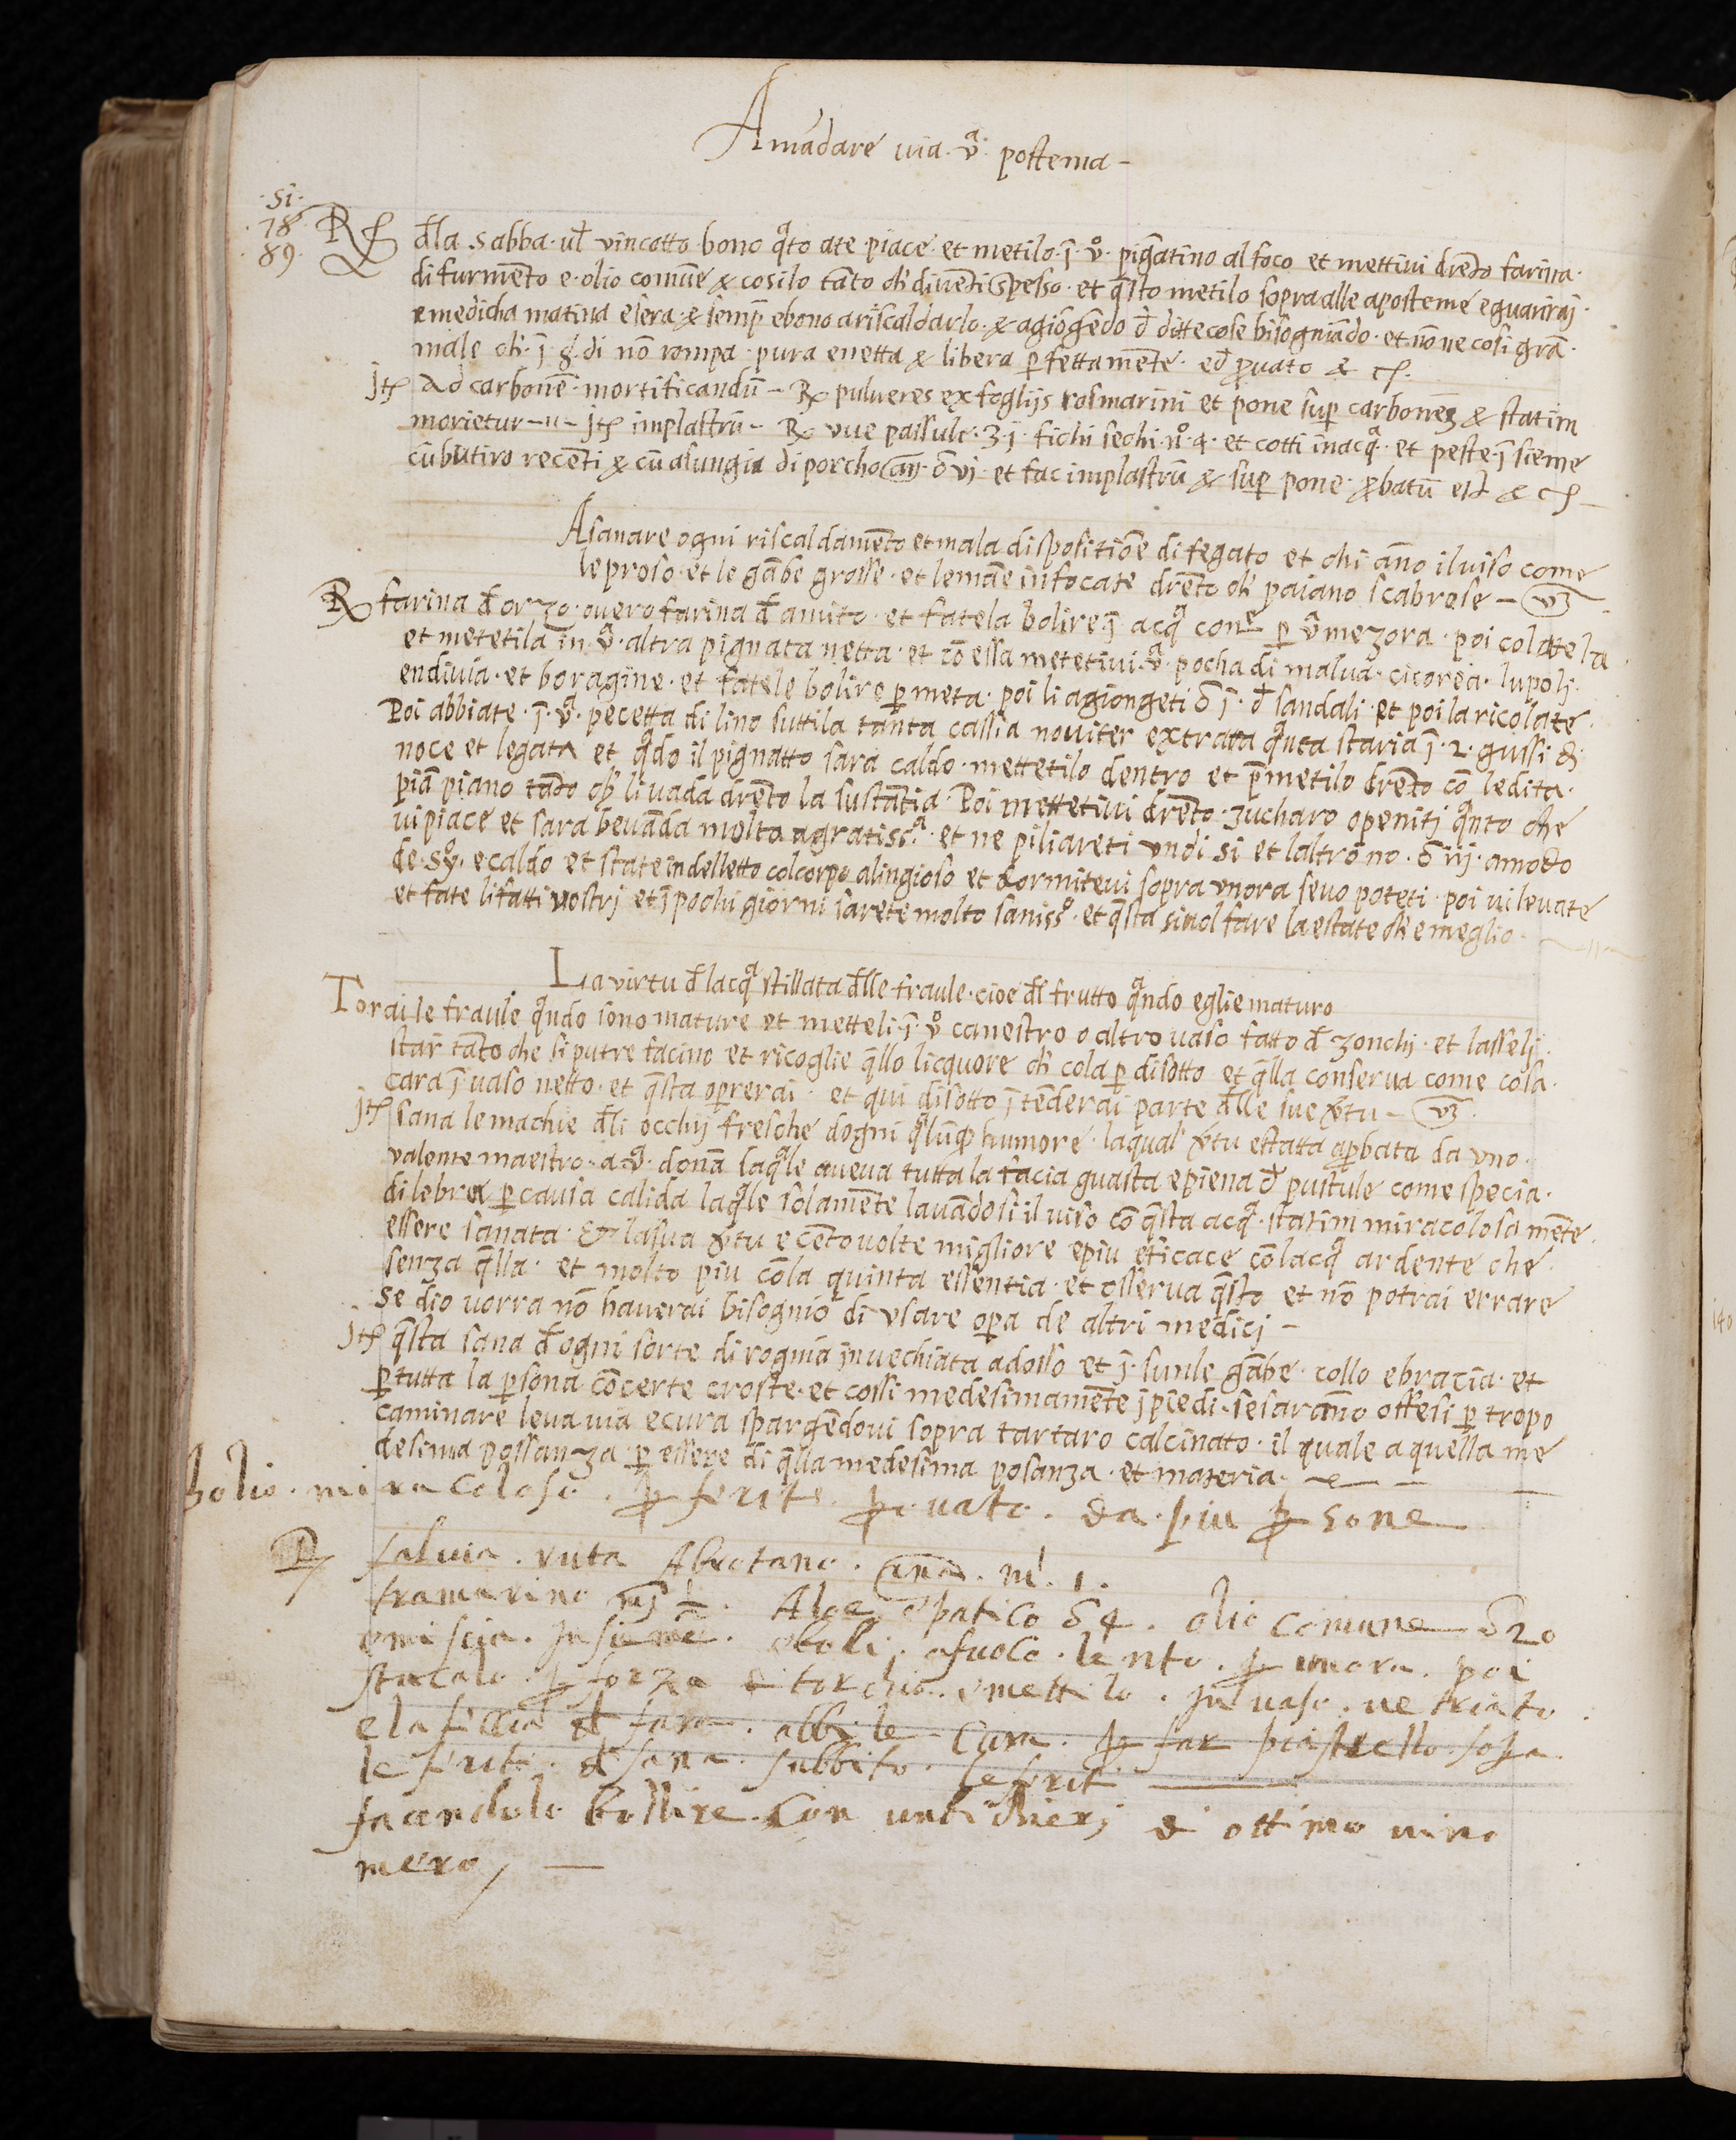 Amādare uia .v̄ª. postema -
.si.
.78.
.89.
R dl̄la sabba . ul̄ vincotto bono qªto ate piace . et metilo . ī . v̄º . pigñatino al foco et mettiui drēto farina .
di furmēto e . olio comūe & cosilo tāto ch' diuēti spesso . et q̄sto metilo sopra alle aposteme e guariraj .
e medicha matina e sera . & semp̄ e bono ariscaldarlo . & agiōgēdo d̄ ditte cose bisogniādo . et nō ne cosi grā .
male ch' . ī . 8 . di nō rompa . pura e netta & libera p̄fettamēte . ed p̄uato &c.
Jt̄ Ad carbonē mortificandū - R pulueres ex foglijs rosmarini et pone sup̄ carbones & statim
morietur - Jt̄ implastrū - R vue passule . ℥ . j . fichi sechi . nº . 4 . et cotti in acqª . et peste . ī sieme
cū butiro recēti & cū asungia di porcho an̄ ℥ vj . et fac implastrū & sup̄ pone . p̄batū est &c -
A sanare ogni riscaldamēto et mala dispositiōe di fegato et chi āno il uiso come
leproso . et le gābe grosse . et le māe infocate drēto ch' paiano scabrose - vȝ
R farina d̄ orzo . ouero farina d̄ amito . et fatela bolire ī acqª cone p̄ v̄ª mezora . poi colatela
et metetila in . v̄ª . altra pignata netta . et cō essa metetiui . v̄ª . pocha di malua . cicorea . lupoli .
endiuia . et boragine . et fatele bolire p̄ meta . poi li agiongeti ℥ j . d̄ sandali . et poi la ricolate .
Poi abbiate . ī . v̄ª . pecetta di lino suttila tanta cassia nouiter extratta qªnta staria ī . 2 . gussi d̄
noce et legata et qªdo il pignatto sara caldo . mettetilo dentro et p̄metilo drēto cō le dita .
piā piano tāto ch' li uada drēto la sustātia . Poi mettetiui drēto . zucharo o penitj qªnto che
ui piace et sara beuāda molto agratissª . et ne piliareti vn di si et laltrō no . ℥ iij . a modo
de . syº . e caldo et state in del letto col corpo alingioso et dormiteui sopra vnora se uo poteti . poi ui leuate
et fate li fatti vostrj et ī pochi giorni sarete molto sanissº . et q̄sta si uol fare la estate ch' e meglio .
La virtu d̄ lacqª stillata d̄lle fraule . cioe d̄l frutto qªndo eglie maturo
Torai le fraule qªndo sono mature et metteli . ī . v̄º canestro o altro uaso fatto d̄ zonchj . et lasselj .
star tāto che si putre facino et ricoglie q̄llo licquore ch' cola p̄ disotto et q̄lla conserua come cosa .
cara ī uaso netto . et q̄sta op̄rerai . et qui disotto ītēderai parte d̄lle sue v̄tu - vȝ
Jt̄ sana le machie d̄li occhij fresche dogni qªlūq humore . la qual v̄tu estatta ap̄bata da vno .
valente maestro . a . v̄ª . donā laqªle aueua tutta la facia guasta e piena d̄ pustule come specia .
di lebra p̄ causa calida laqªle solamēte lauādosi il uiso cō q̄sta acqª . statim miracolosa mēte .
essere sanata . Et la sua v̄tu e cēto uolte migliore e piu eficace cō lacqª ardente che .
senza q̄lla . et molto piu cō la quinta essentia . et osserua q̄sto et nō potrai errare
se dio uorra nō hauerai bisognio di vsare op̄a de altri medicj -
Jt̄ q̄sta sana d̄ ogni sorte di rognia inuechiata adosso et ī . su nle gābe . collo e bracia . et
p̄ tutta la p̄sona cō certe croste . et cossi medesimamēte j piedi . se sarāno offesi p̄ tropo
caminare leua uia e cura spargēdoui sopra tartaro calcinato . il quale a quella me
desima possanza p̄ essere di q̄lla medesima posanza . et materia .
holio . miracoloso . p̄ ferite . p̄uato . da . piu p̄sone
R saluia . ruta Abrotano . ana . m . 1 .
tramarino m̄ ½ . Aloe epatico ℥ 4 . olio comune ℥ 20
e miscia . Insieme . e boli . a fuoco . lento . p̄ unora . poi
stucalo . p̄ forza d torchio . e mettilo . in uaso . uetriato .
e la feccia d fara . abbile . cura . p̄ far piastrello . sop̄a .
le ferite . d sana . subbito . le ferit
facendolo bollire . con un bichierj d ottimo uino
mero ,